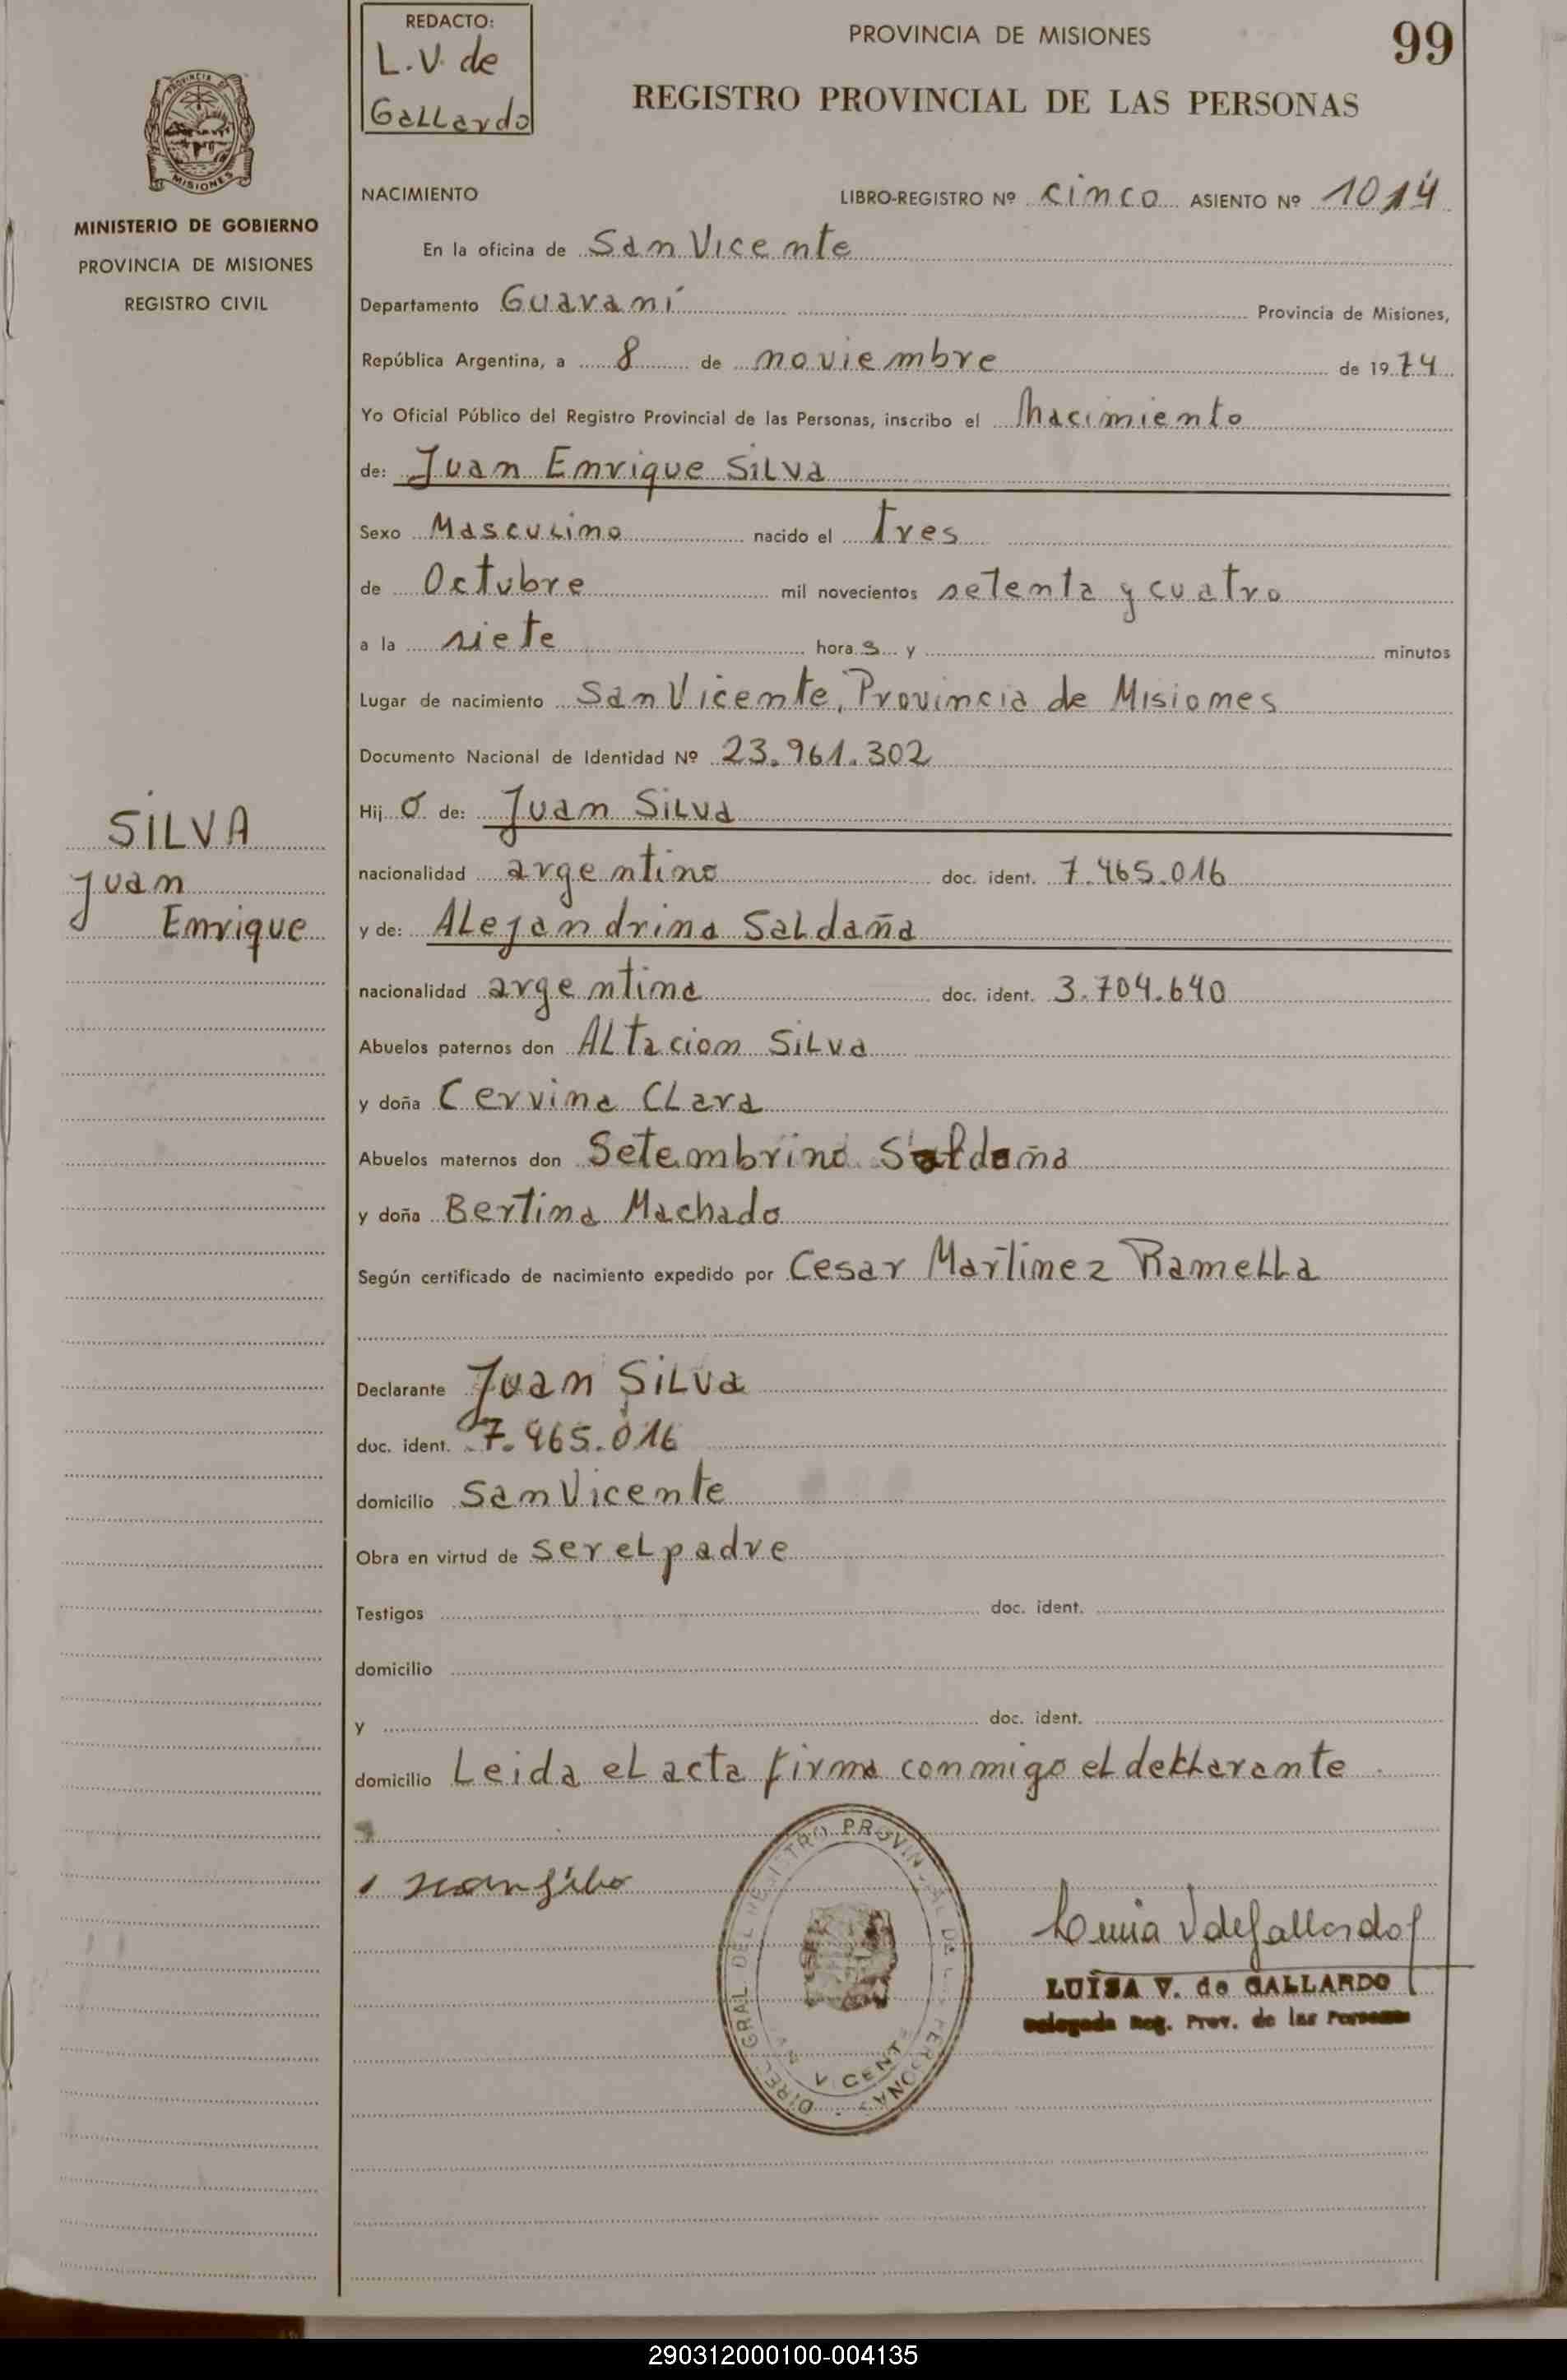 REDACTO:
L.V. de
Gallardo
PROVINCIA DE MISIONES
99
REGISTRO PROVINCIAL DE LAS PERSONAS
MISIONES
MINISTERIO DE GOBIERNO
PROVINCIA DE MISIONES
REGISTRO CIVIL
NACIMIENTO LIBRO-REGISTRO Nº cinco ASIENTO Nº 1014
En la oficina de San Vicente
Departamento Guaraní Provincia de Misiones,
República Argentina, a 8 de noviembre de 1974
Yo Oficial Público del Registro Provincial de las Personas, inscribo el Nacimiento
de: Juan Enrique Silva
Sexo Masculino nacido el tres
de Octubre mil novecientos setenta y cuatro
a la siete hora s y minutos
Lugar de nacimiento San Vicente, Provincia de Misiones
Documento Nacional de Identidad Nº 23.961.302
SILVA
Juan
Enrique
Hij o de: Juan Silva
nacionalidad argentino doc. ident. 7.465.016
y de: Alejandrina Saldaña
nacionalidad argentina doc. ident. 3.704.640
Abuelos paternos don Altacion Silva
y doña Cervina Clara
Abuelos maternos don Setembrino Saldaña
y doña Bertina Machado
Según certificado de nacimiento expedido por Cesar Martinez Ramella
Declarante Juan Silva
doc. ident. 7.465.016
domicilio San Vicente
Obra en virtud de ser el padre
Testigos doc. ident.
domicilio
y doc. ident.
domicilio Leida el acta firma conmigo el declarante
DIREC. GRAL. DEL REGISTRO PROVINCIAL DE LAS PERSONAS
SAN VICENTE
LUISA V. de GALLARDO
Delegada Reg. Prov. de las Personas
290312000100-004135